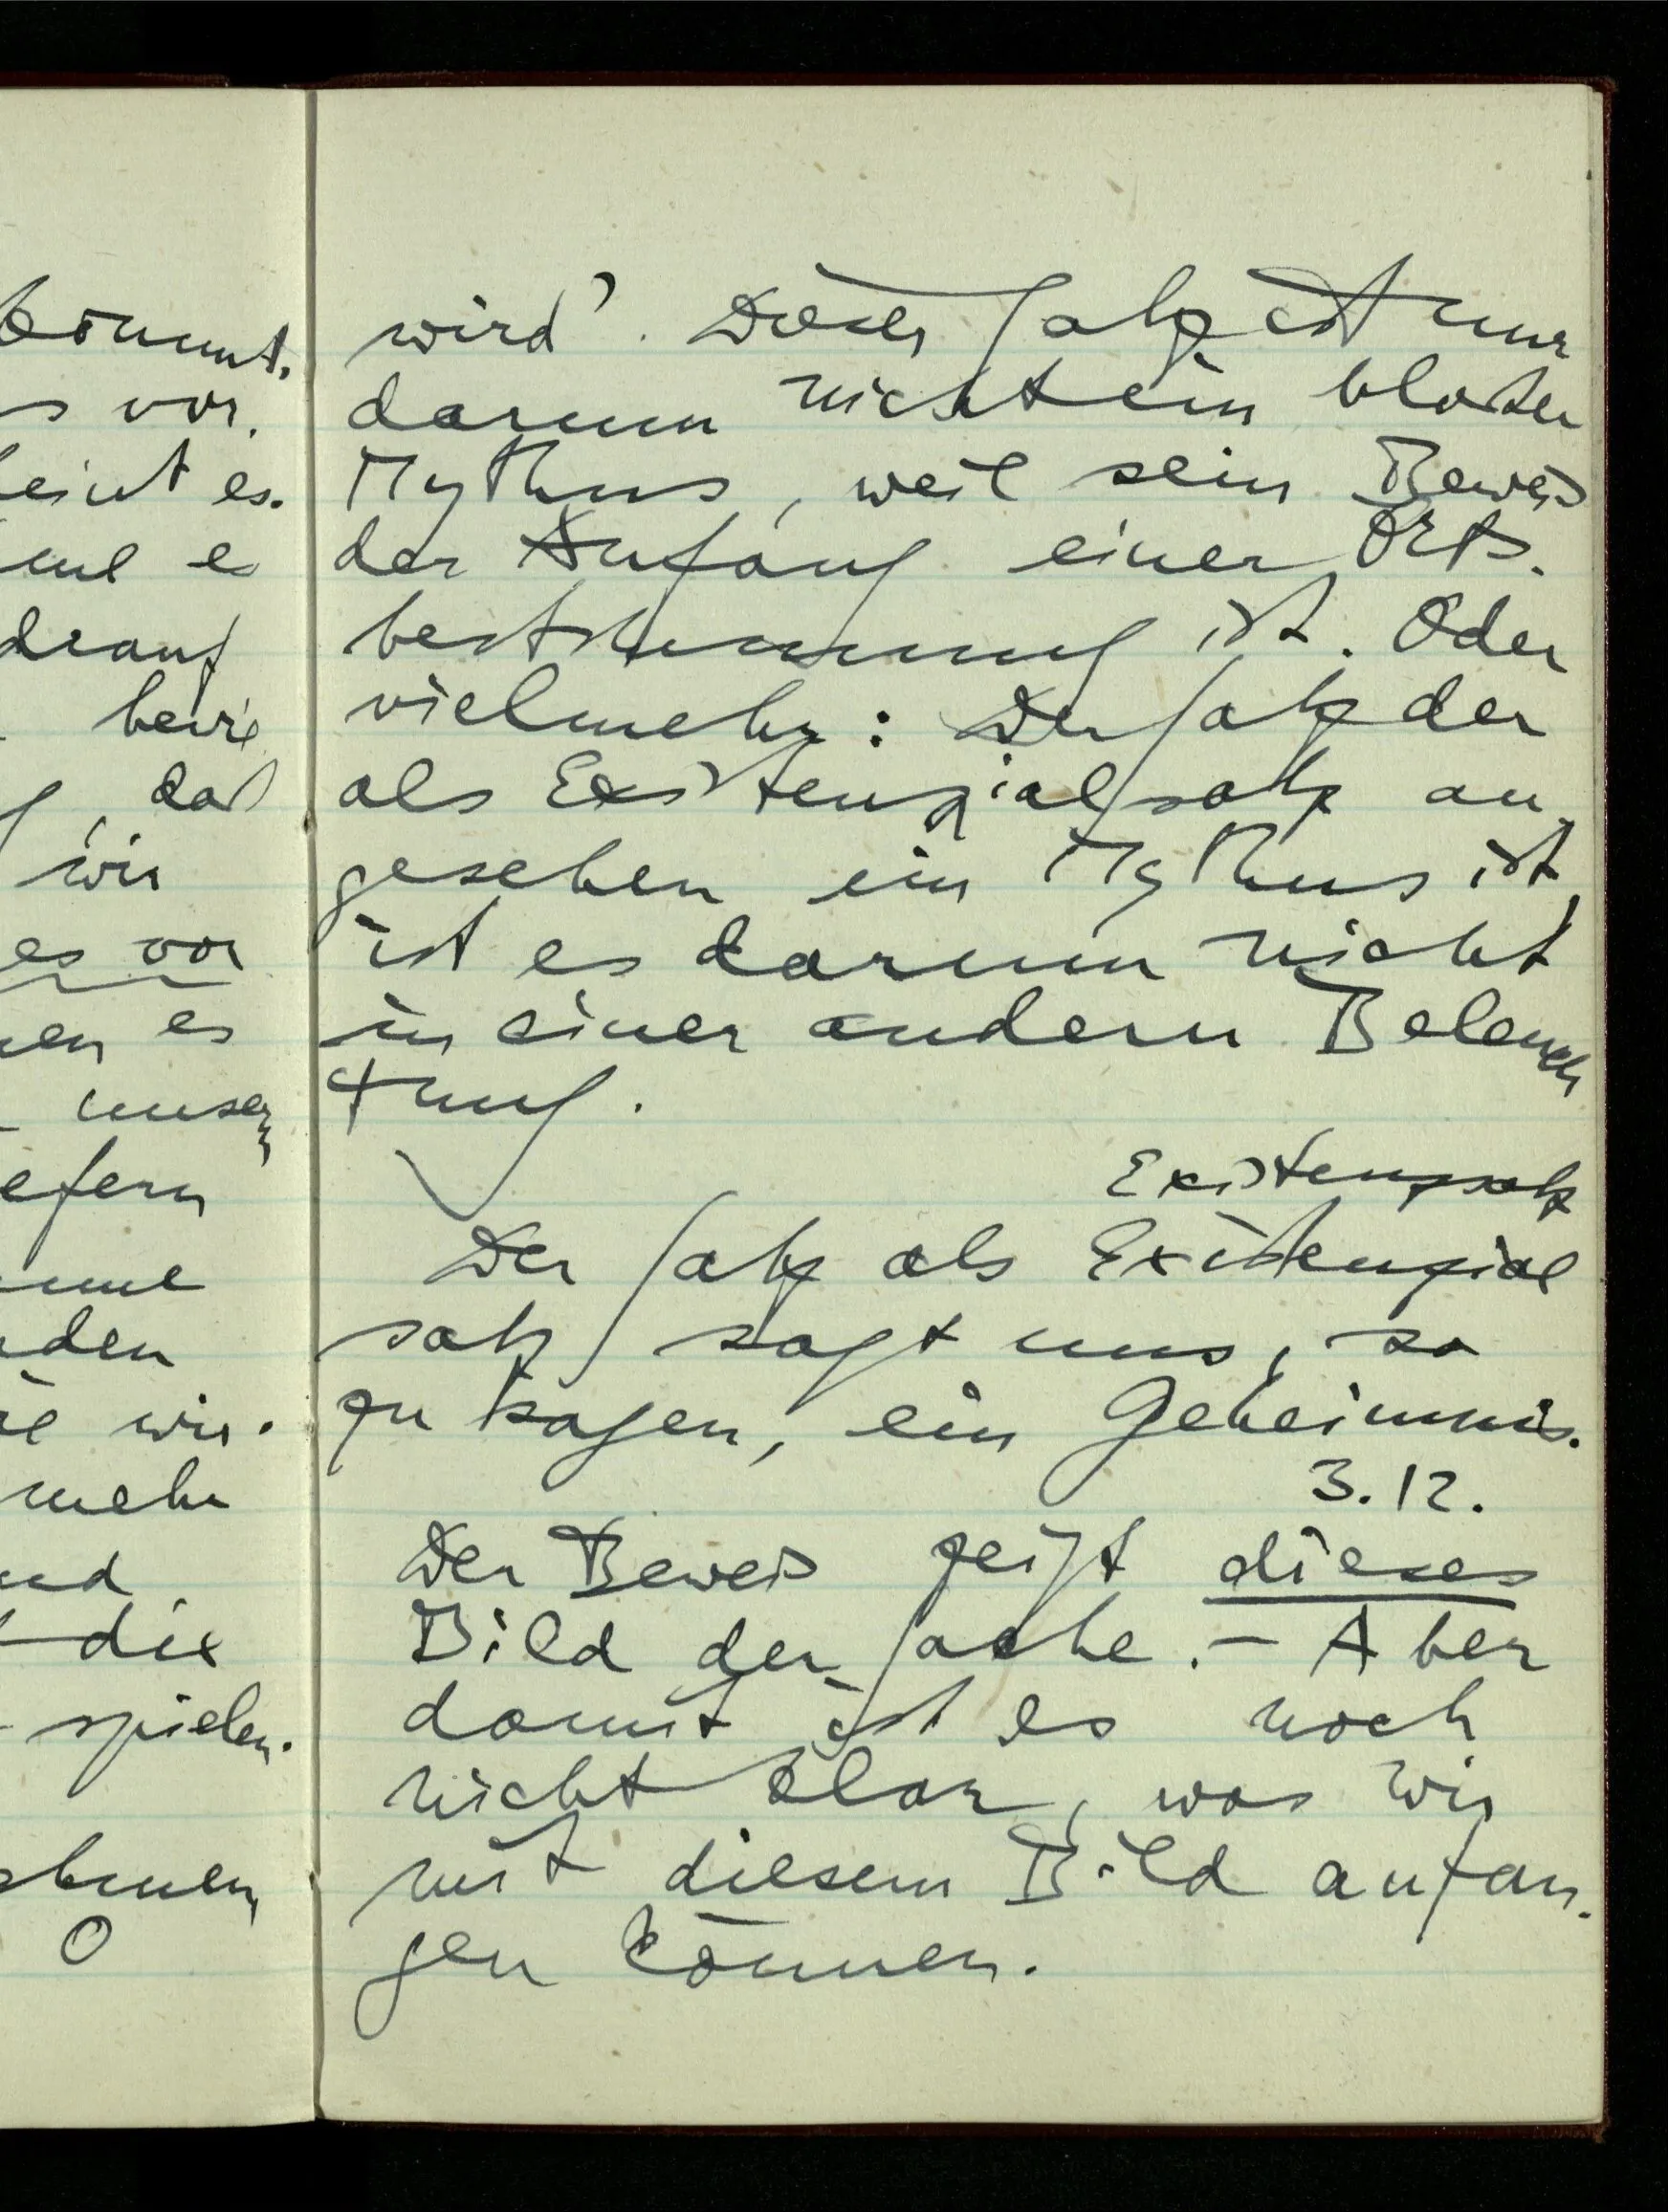 kommt.
s vor.
eint es.
und es
drauf
bewie
g, daß
wir
es vor
nen es
unser
efern
nden
wir.
mehr
und
die
spielen.
ehmen
O
wird'. Dieser Satz ist nur
darum nicht ein bloßer
Mythus, weil sein Beweis
der Anfang einer Orts-
bestimmung ist. Oder
vielmehr: Der Satz der
als Existenzialsatz an-
gesehen ein Mythus ist,
ist es darum nicht
in einer andern Beleuch
tung.
Existenzsatz
Der Satz als Existenzial
satz sagt uns, so
zu sagen, ein Geheimnis.
3.12.
Der Beweis zeigt dieses
Bild der Sache. – Aber
damit ist es noch
nicht klar, was wir
mit diesem Bild anfan-
gen können.